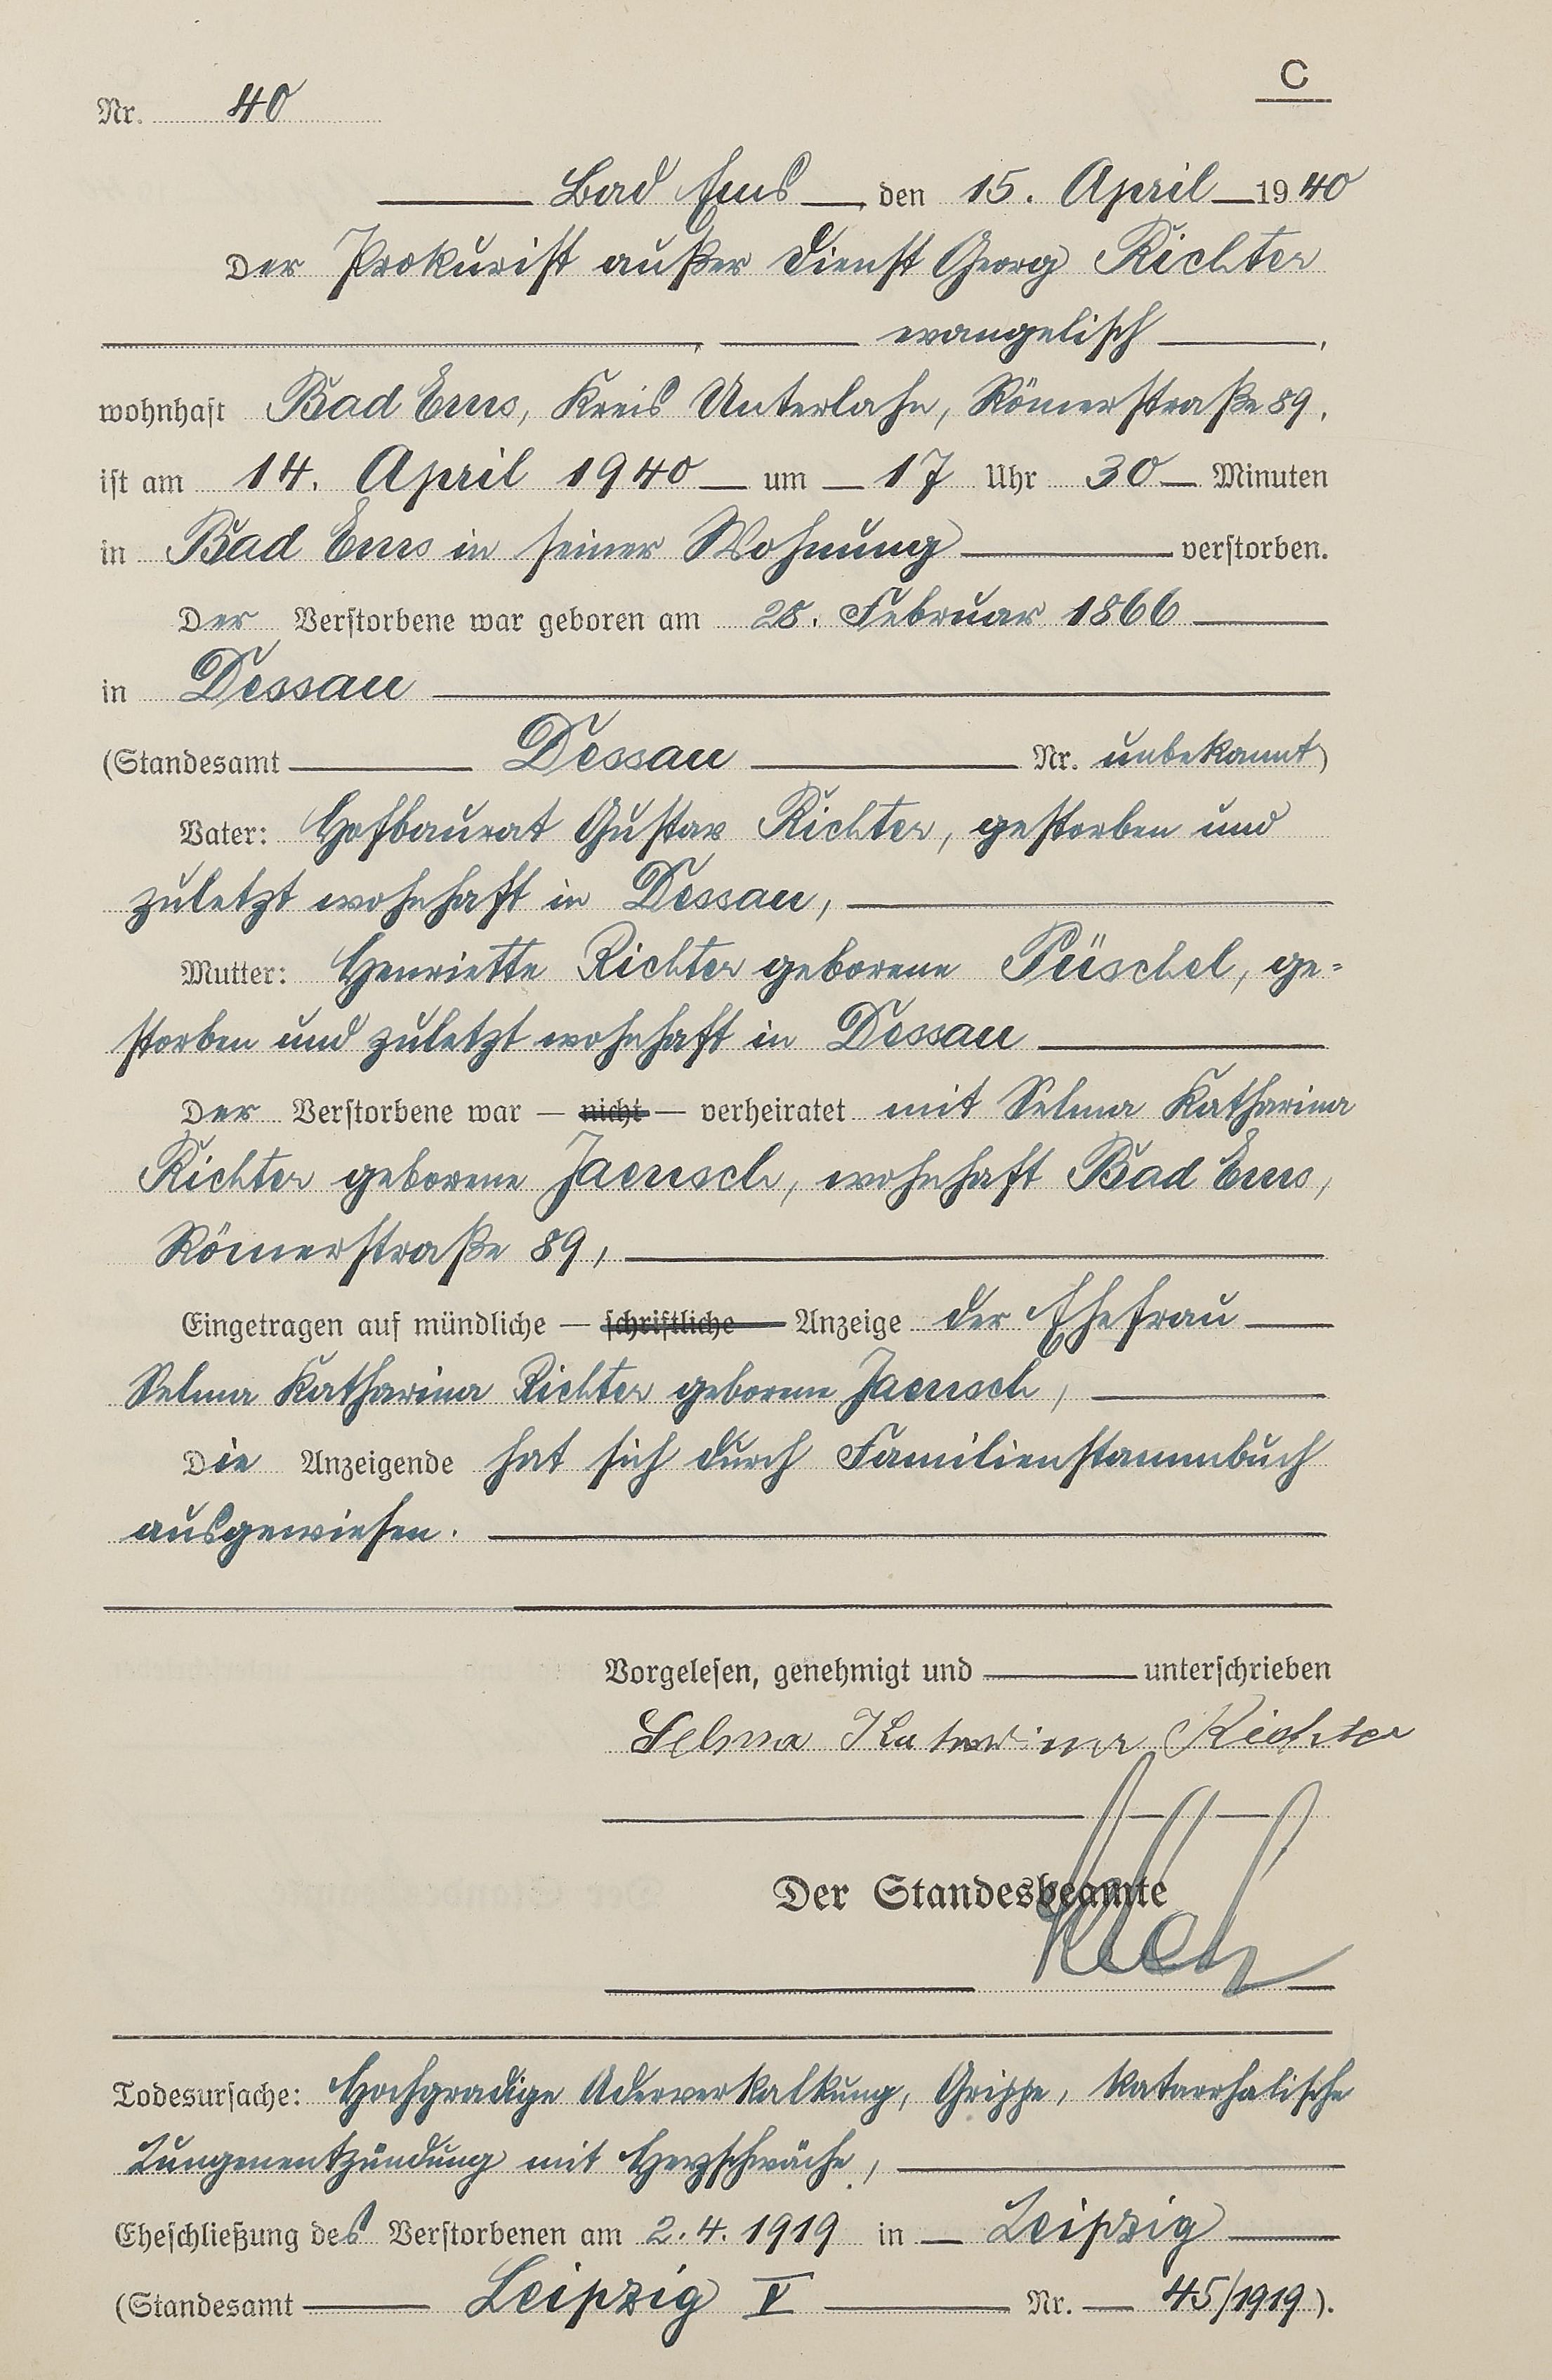 C
Nr. 40
Bad Ems, den 15. April 1940
Der Prokurist außer Dienst Georg Richter
, evangelisch,
wohnhaft Bad Ems, Kreis Unterlahn, Römerstraße 89,
ist am 14. April 1940 um 17 Uhr 30 Minuten
in Bad Ems in seiner Wohnung verstorben.
Der Verstorbene war geboren am 28. Februar 1866
in Dessau
(Standesamt Dessau Nr. unbekannt)
Vater: Hofbaurat Gustav Richter, gestorben und
zuletzt wohnhaft in Dessau,
Mutter: Henriette Richter geborene Püschel, ge=
storben und zuletzt wohnhaft in Dessau
Der Verstorbene war — nicht — verheiratet mit Selma Katharina
Richter geborene Jaensch, wohnhaft Bad Ems,
Römerstraße 89,
Eingetragen auf mündliche — schriftliche — Anzeige der Ehefrau
Selma Katharina Richter geborene Jaensch,
Die Anzeigende hat sich durch Familienstammbuch
ausgewiesen.
Vorgelesen, genehmigt und unterschrieben
Selma Katharina Richter
Der Standesbeamte
Todesursache: Hochgradige Aderverkalkung, Grippe, katarrhalische
Lungenentzündung mit Herzschwäche,
Eheschließung des Verstorbenen am 2.4.1919 in Leipzig
(Standesamt Leipzig V Nr. 45/1919).